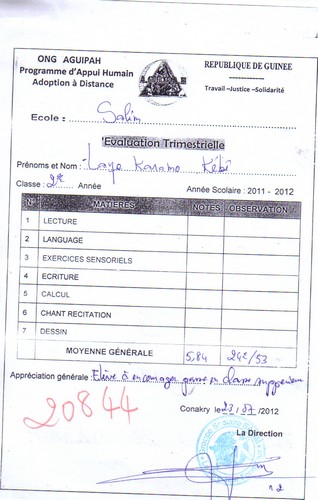 ONG AGUIPAH
Programme d'Appui Humain
Adoption à Distance
REPUBLIQUE DE GUINEE
Travail –Justice –Solidarité
Ecole : Salim
Evaluation Trimestrielle
Prénoms et Nom : Laye Karamo Kébé
Classe : 2e Année Année Scolaire : 2011 - 2012
N° MATIERES NOTES OBSERVATION
1 LECTURE
2 LANGUAGE
3 EXERCICES SENSORIELS
4 ECRITURE
5 CALCUL
6 CHANT RECITATION
7 DESSIN
MOYENNE GÉNÉRALE 5,84 24e/53
Appréciation générale : Elève à encourager passe en classe suppérieure
20844
Conakry le 23/07/2012
La Direction